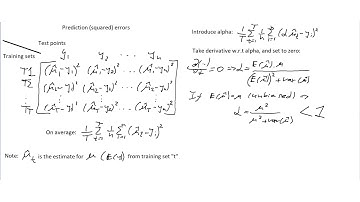 Prediction (squared) errors
Test points
y₁ y₂ ... yₙ
Training sets
T1 (μ̂₁-y₁)² (μ̂₁-y₂)² ... (μ̂₁-yₙ)²
T2 (μ̂₂-y₁)² (μ̂₂-y₂)² ... (μ̂₂-yₙ)²
⋮
TT (μ̂T-y₁)² (μ̂T-y₂)² ... (μ̂T-yₙ)²
On average: 1/T Σ 1/n Σ (μ̂t-yᵢ)²
Note: μ̂t is the estimate for μ (E(y)) from training set "t"
Introduce alpha: 1/T Σ 1/n Σ (αμ̂t-yᵢ)²
Take derivative w.r.t alpha, and set to zero:
∂(.)/∂α = 0 => α = E(μ̂)μ / (E(μ̂))²+var(μ̂)
If E(μ̂)=μ (unbiased) =>
α = μ² / μ²+var(μ̂) < 1